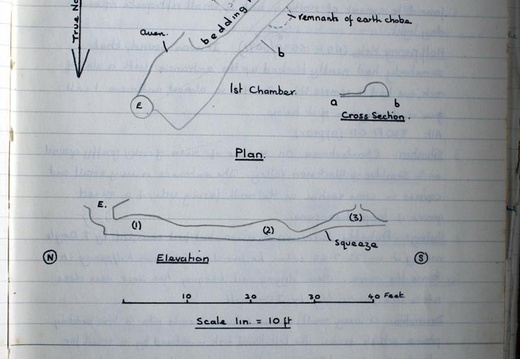 True No
aven.
bedding
remnants of earth choke
b
E
1st Chamber.
a
b
Cross Section.
Plan.
E.
(1)
(2)
(3)
squeeze
N
Elevation
S
10
20
30
40 Feet
Scale 1in. = 10 ft